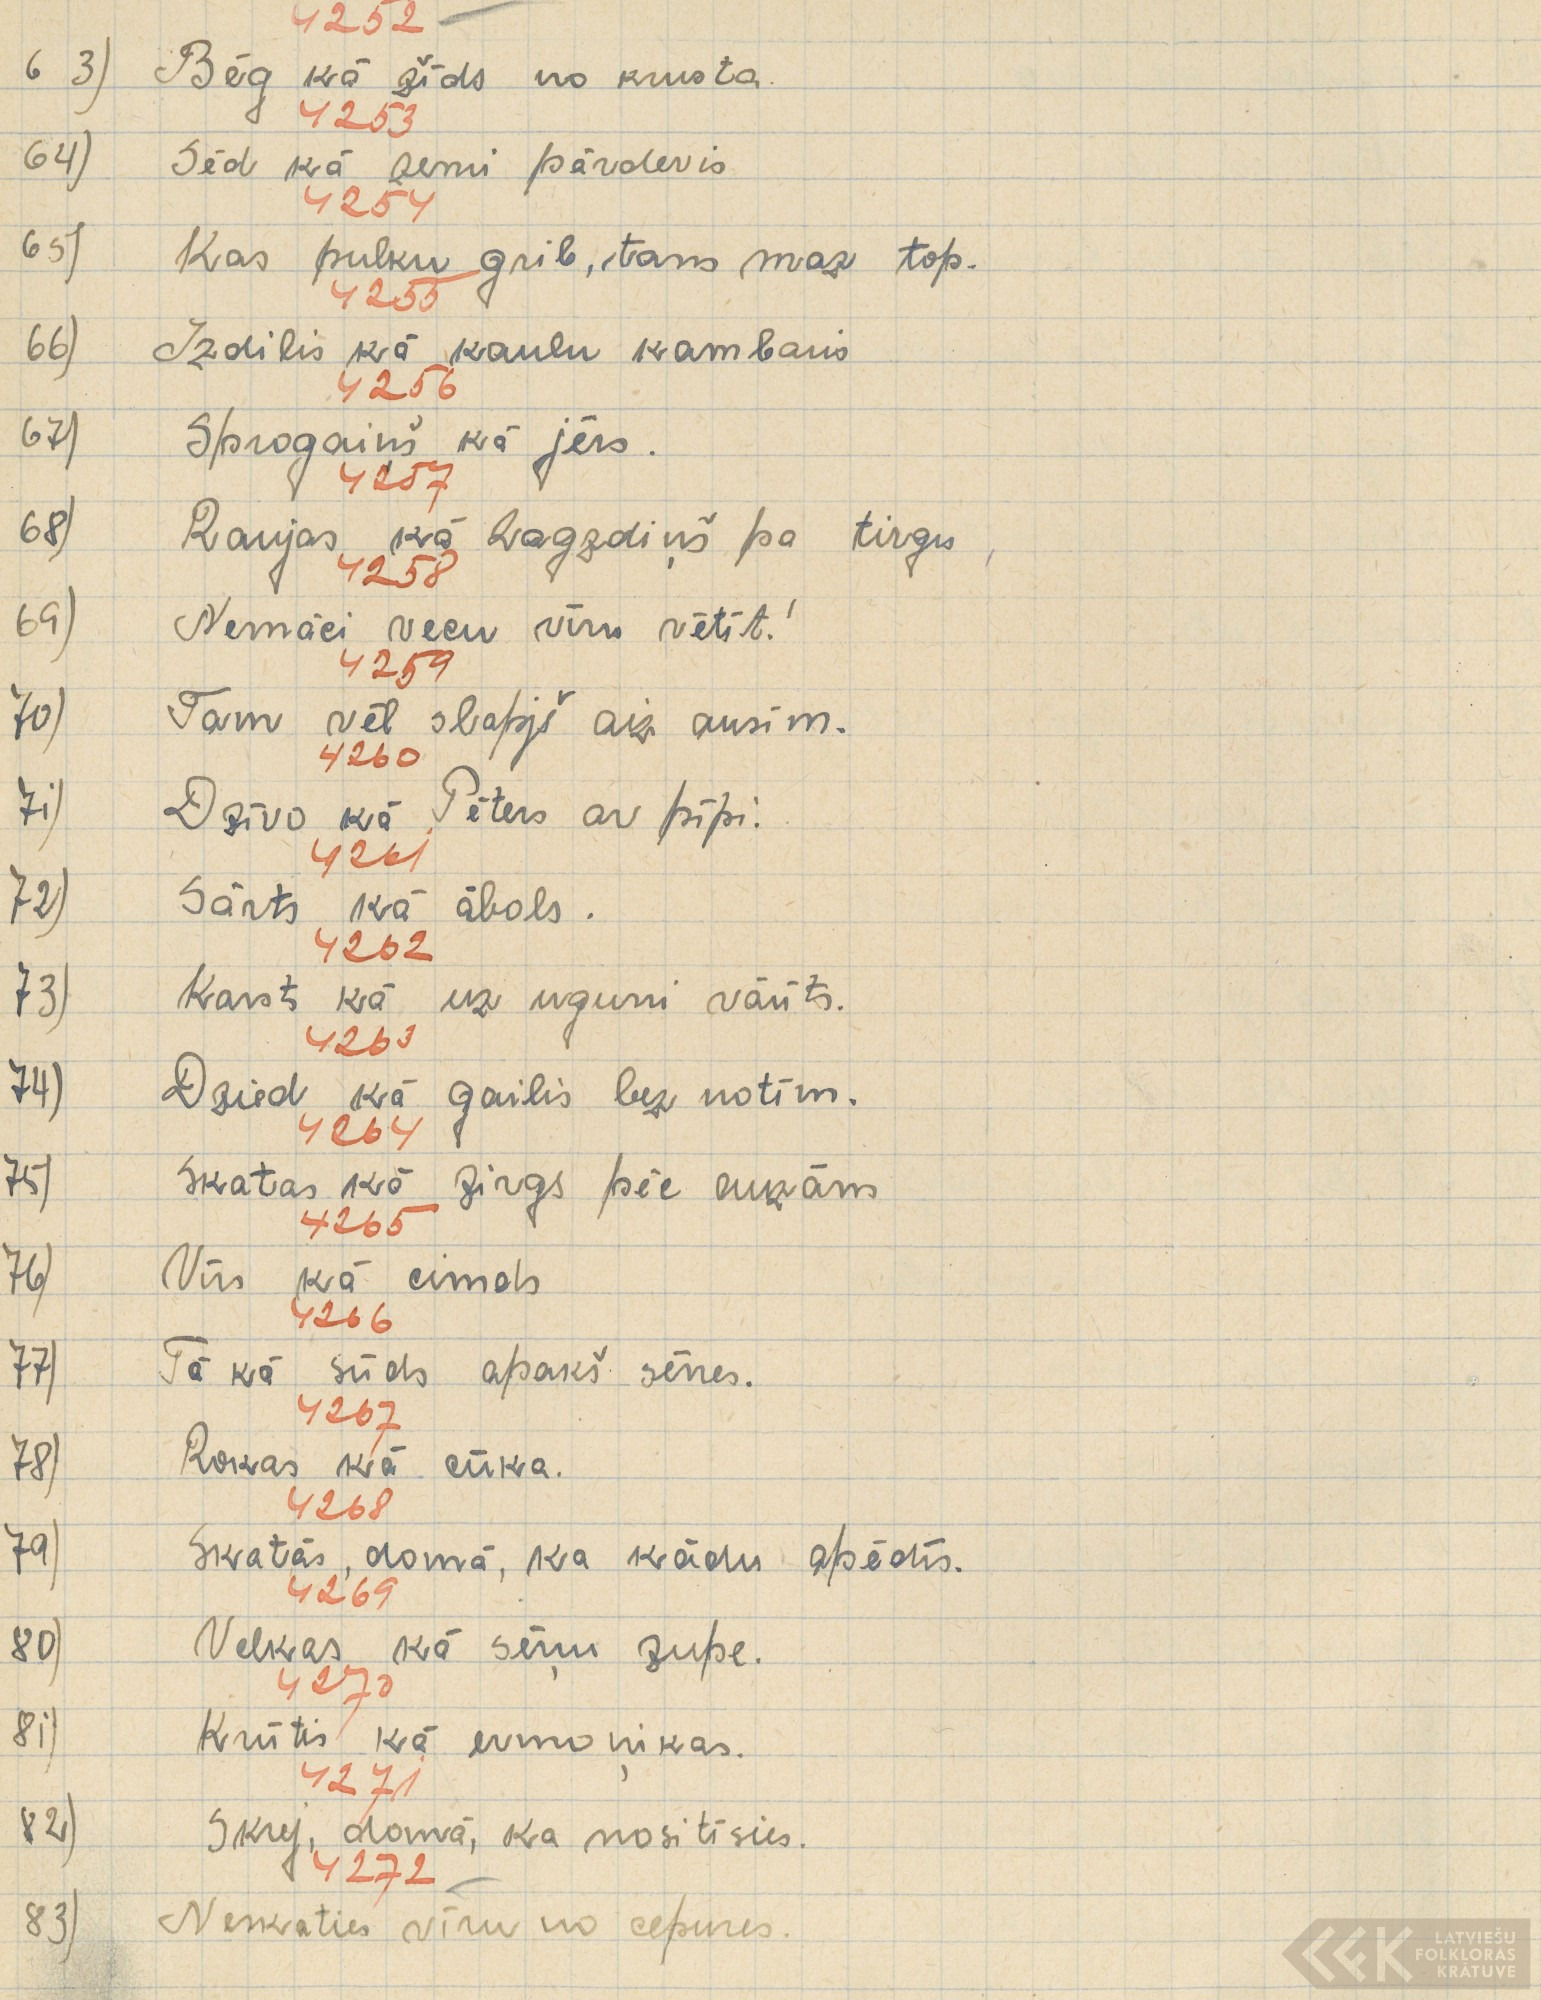 4252
63) Bēg kā žīds no krusta.
4253
64) Sēd kā zemi pārdevis
4254
65) Kas pulku grib, tam maz top.
4255
66) Izdilis kā kaulu kambaris
4256
67) Sprogaiņš kā jērs.
4257
68) Raujas kā Lagzdiņš pa tirgu,
4258
69) Nemāci vecu vīru vētīt!
4259
70) Tam vēl slapjš aiz ausīm.
4260
71) Dzīvo kā Pēters ar pīpi.
4261
72) Sārts kā ābols.
4262
73) Karsts kā uz uguni vārīts.
4263
74) Dzied kā gailis bez notīm.
4264
75) Skatas kā zirgs pēc auzām
4265
76) Vīrs kā cimds
4266
77) Tā kā sūds apakš sēnes.
4267
78) Rokas kā cūka.
4268
79) Skatās, domā, ka kādu apēdīs.
4269
80) Velkas kā sēņu zupe.
4270
81) Krūtis kā ermoņikas.
4271
82) Skrej, domā, ka nositīsies.
4272
83) Neskaties vīru no cepures.
LATVIEŠU
FOLKLORAS
KRĀTUVE